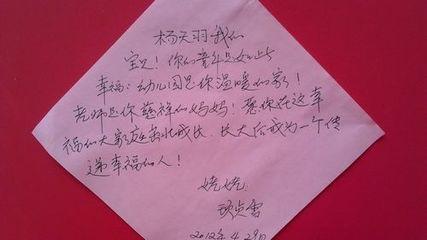 杨天羽我们
宝贝！你们童年是如此
幸福：幼儿园是你温暖的家！
老师是你慈祥的妈妈！愿你在这幸
福的大家庭茁壮成长，长大后成为一个传
递幸福的人！
姥姥
2012年4.29日